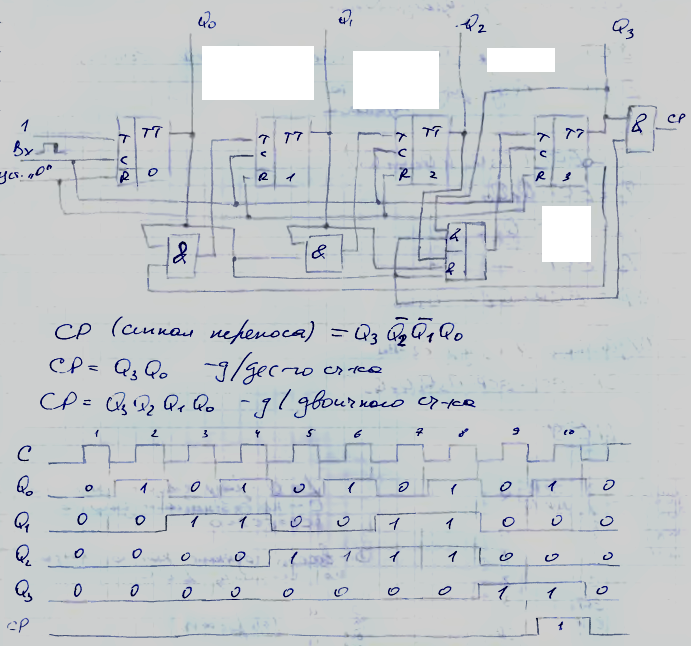 Q₀ Q₁ Q₂ Q₃
1
Вх
уст. „0"
T TT
C
R 0
T TT
C
R 1
T TT
C
R 2
T TT
C
R 3
& CP
& & & &
CP (сигнал переноса) = Q₃ Q̅₂ Q̅₁ Q₀
CP = Q₃ Q₀ - д/дес-го сч-ка
CP = Q₃ Q₂ Q₁ Q₀ - д/двоичного сч-ка
1 2 3 4 5 6 7 8 9 10
C
Q₀ 0 1 0 1 0 1 0 1 0 1 0
Q₁ 0 0 1 1 0 0 1 1 0 0 0
Q₂ 0 0 0 0 1 1 1 1 0 0 0
Q₃ 0 0 0 0 0 0 0 0 1 1 0
CP 1